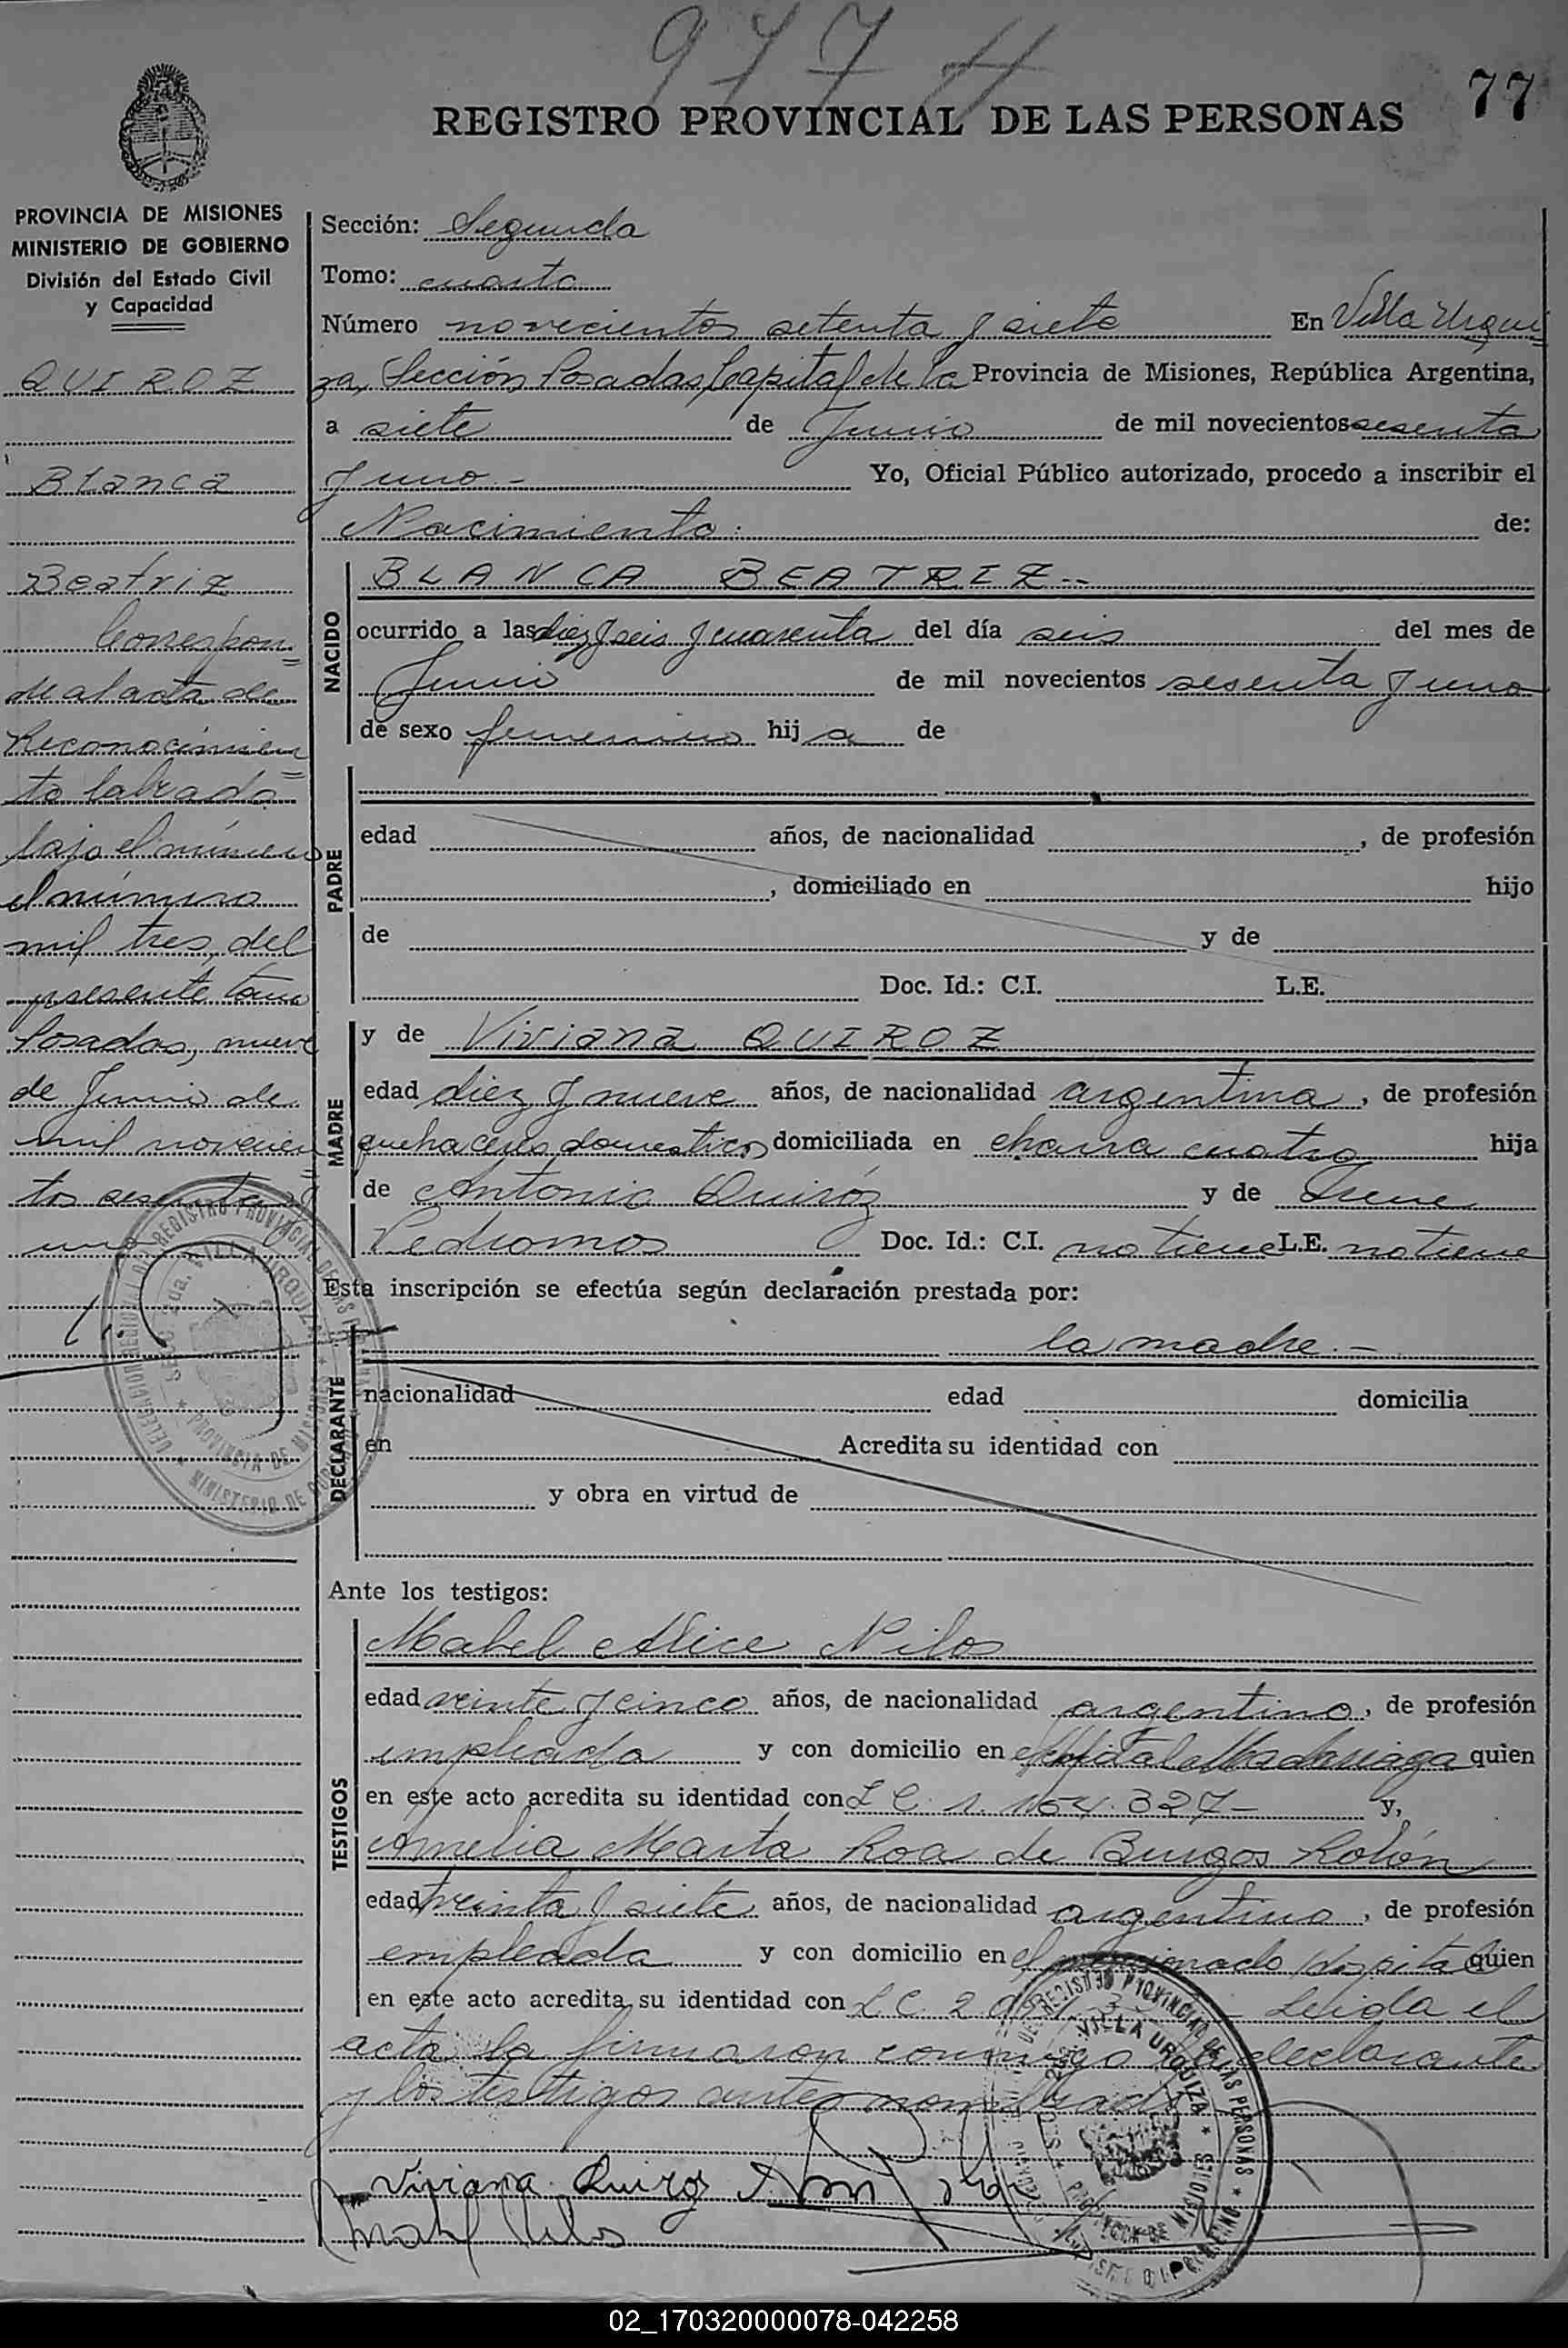 977 H
77
REGISTRO PROVINCIAL DE LAS PERSONAS
PROVINCIA DE MISIONES
MINISTERIO DE GOBIERNO
División del Estado Civil
y Capacidad
QUIROZ
Blanca
Beatriz
Correspon=
de al acta de
Reconocimien=
to labrado
bajo el número
el número
mil tres, del
presente tomo
Posadas, nueve
de Junio de
mil novecien=
tos sesenta y
uno
Sección: Segunda
Tomo: cuarto
Número novecientos setenta y siete En Villa Urqui=
za, Sección, Posadas, Capital de la Provincia de Misiones, República Argentina,
a siete de Junio de mil novecientos sesenta
y uno.- Yo, Oficial Público autorizado, procedo a inscribir el
Nacimiento: de:
NACIDO
BLANCA BEATRIZ.-
ocurrido a las diez y seis y cuarenta del día seis del mes de
Junio de mil novecientos sesenta y uno
de sexo femenino hij a de
PADRE
edad años, de nacionalidad , de profesión
, domiciliado en hijo
de y de
Doc. Id.: C.I. L.E.
MADRE
y de Viviana QUIROZ
edad diez y nueve años, de nacionalidad argentina, de profesión
quehaceres domesticos domiciliada en chacra cuatro hija
de Antonio Quiróz y de Irene
Pedromos Doc. Id.: C.I. no tiene L.E. no tiene
Esta inscripción se efectúa según declaración prestada por:
la madre.-
DECLARANTE
nacionalidad edad domicilia
en Acredita su identidad con
y obra en virtud de
Ante los testigos:
TESTIGOS
Mabel Alice Nilos
edad veinte y cinco años, de nacionalidad argentino, de profesión
empleada y con domicilio en el Hospital Madariaga quien
en este acto acredita su identidad con L C. 1.164.327- y,
Amelia Marta Roa de Burgos Rolón
edad treinta y siete años, de nacionalidad argentino, de profesión
empleada y con domicilio en el mencionado hospital quien
en este acto acredita su identidad con L.C. 2 Leida el
acta la firmaron conmigo la declarante
y los testigos antes nombrados
Viviana Quiroz
Mabel Nilos
DELEGACION REGIONAL DEL REGISTRO PROVINCIAL DE LAS PERSONAS
VILLA URQUIZA
PROVINCIA DE MISIONES
MINISTERIO DE GOBIERNO
DEL REGISTRO PROVINCIAL DE LAS PERSONAS
VILLA URQUIZA
PROVINCIA DE MISIONES
02_170320000078-042258